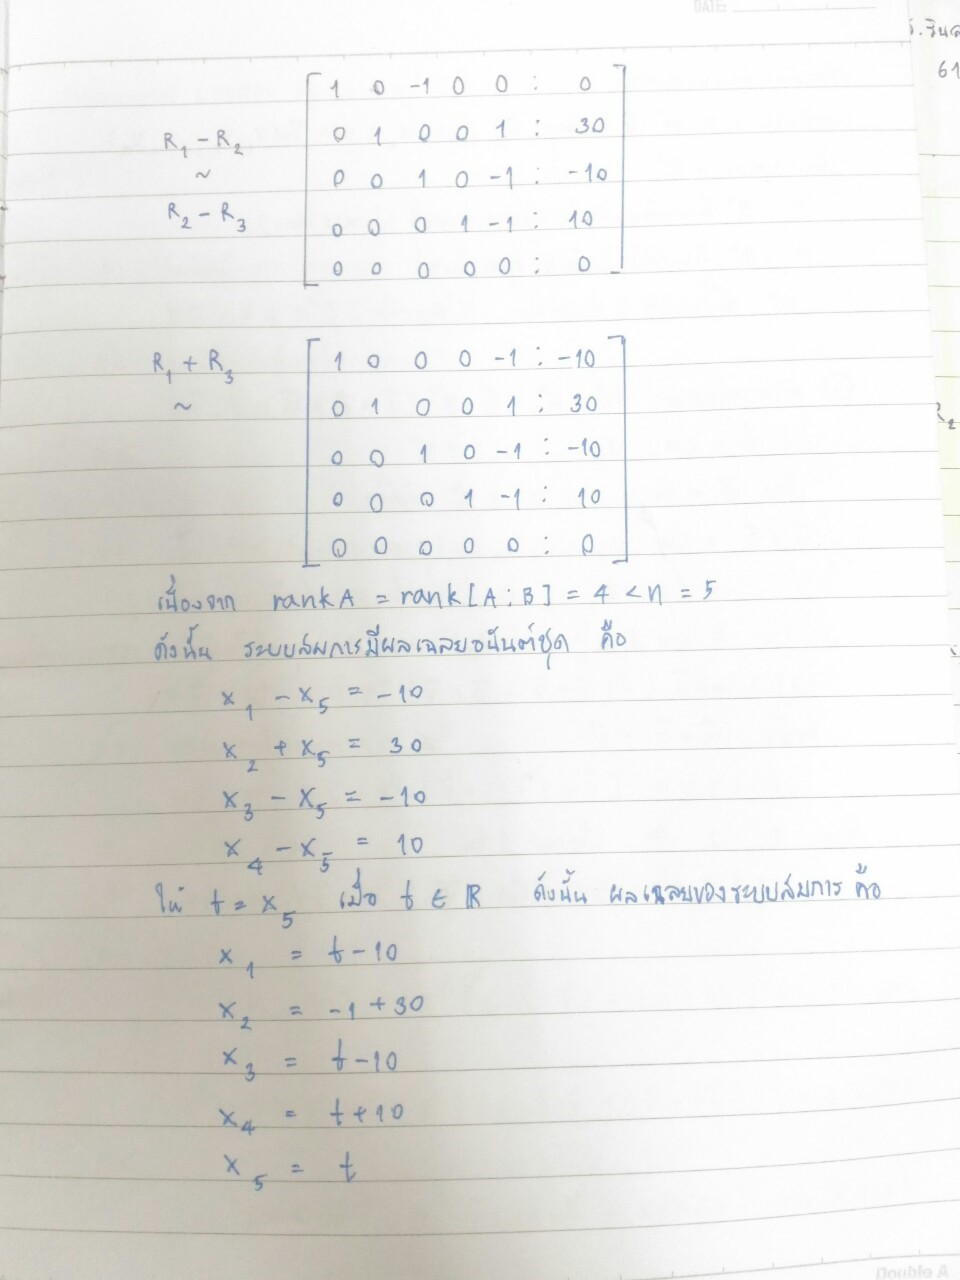 DATE:
1 0 -1 0 0 : 0
R₁ - R₂ 0 1 0 0 1 : 30
~ 0 0 1 0 -1 : -10
R₂ - R₃ 0 0 0 1 -1 : 10
0 0 0 0 0 : 0
R₁ + R₃ 1 0 0 0 -1 : -10
~ 0 1 0 0 1 : 30
0 0 1 0 -1 : -10
0 0 0 1 -1 : 10
0 0 0 0 0 : 0
เนื่องจาก rank A = rank [A : B] = 4 < n = 5
ดังนั้น ระบบสมการมีผลเฉลยอนันต์ชุด คือ
x₁ - x₅ = -10
x₂ + x₅ = 30
x₃ - x₅ = -10
x₄ - x₅ = 10
ให้ t = x₅ เมื่อ t ∈ ℝ ดังนั้น ผลเฉลยของระบบสมการ คือ
x₁ = t - 10
x₂ = -1 + 30
x₃ = t - 10
x₄ = t + 10
x₅ = t
61
R₂
Double A